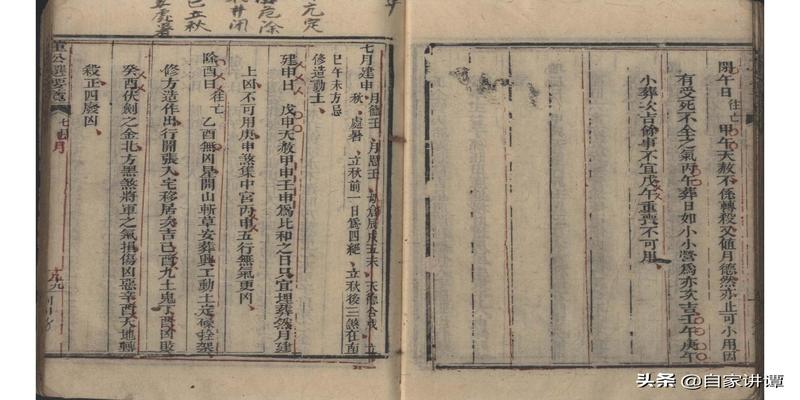 開午日往亡甲午天赦不係轉殺又值月德然亦止可小用因
有受死不全之氣丙午葬日如小小營為亦次吉壬午庚午
小葬次吉餘事不宜戊午重喪不可用
七月建申月德壬月恩壬
秋處暑立秋前一日為四絕立秋後三煞在南
巳午未方忌
修造動土
建申日戊申天赦甲申壬申為比和之日只宜埋葬然月建
上凶不可用庚申煞集中宮丙申五行無氣更凶
除酉日往亡乙酉無凶星開山斬草安葬興工動土定磉拴架
修方造作出行開張入宅移居次吉己酉九土鬼丁酉凶敗
癸酉伏劍之金北方黑煞將軍之氣損傷凶惡辛酉天地轉
殺正四廢凶
董公選要覽
七月
头条 @自家讲谭